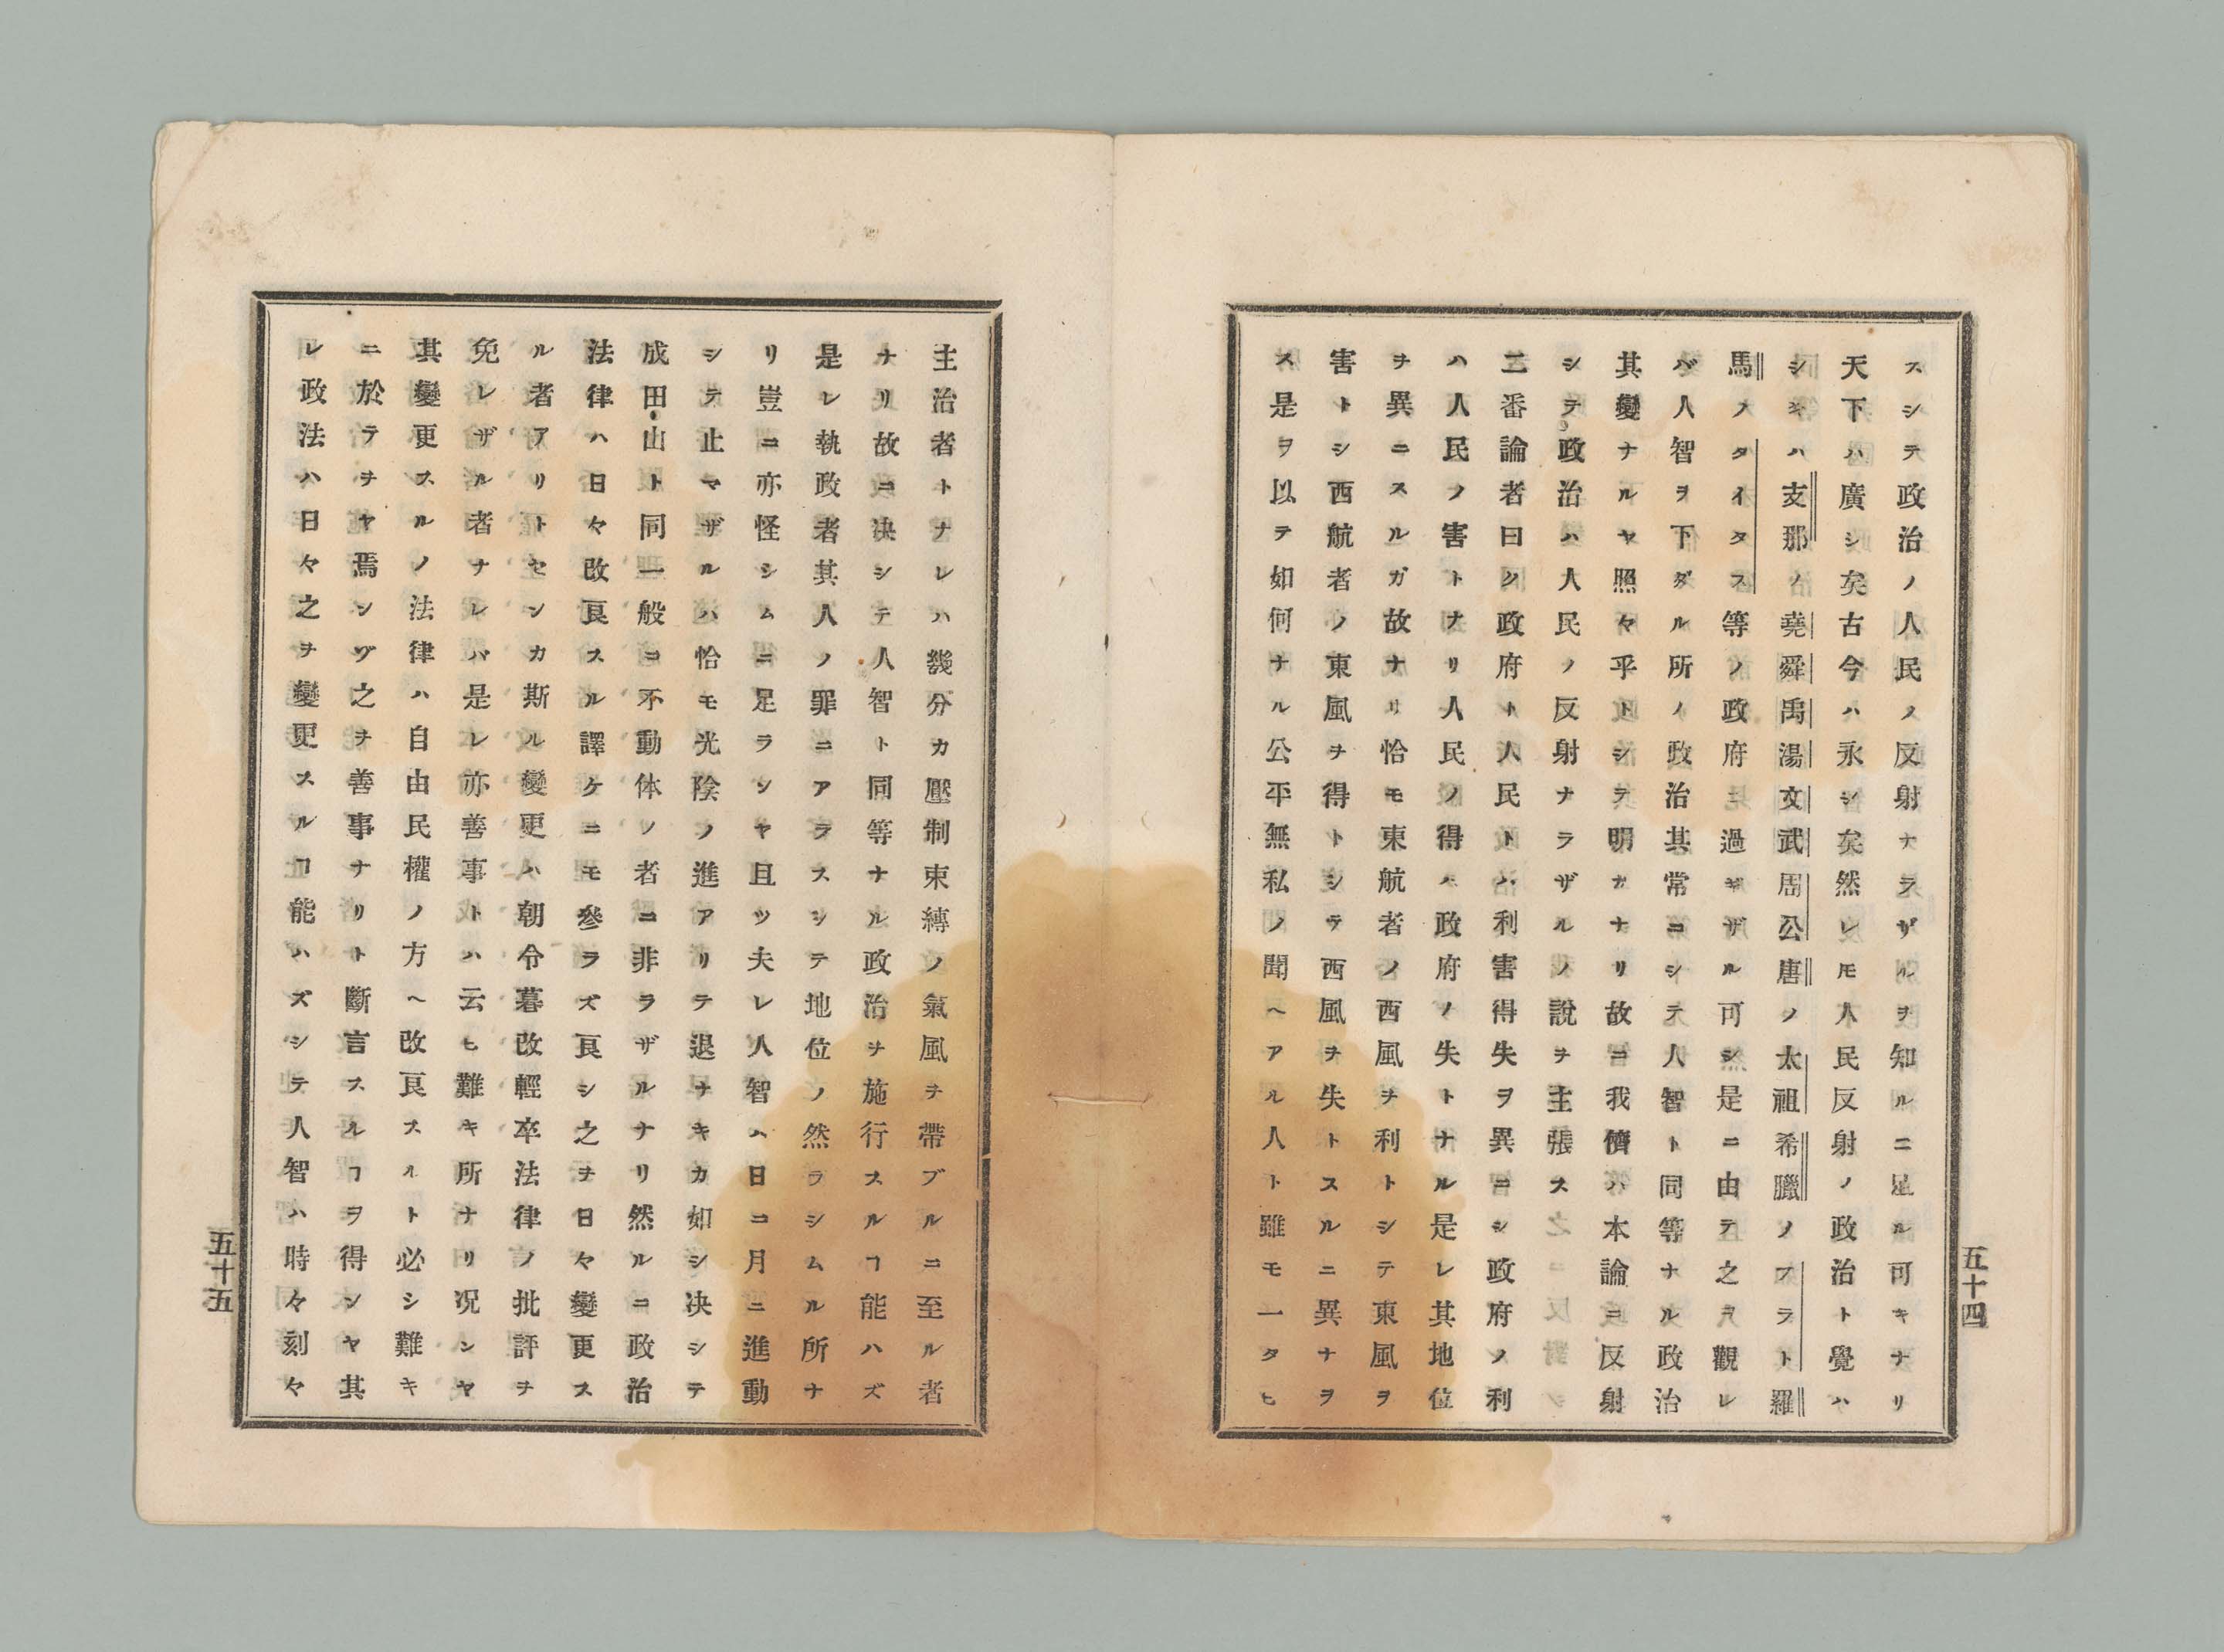 スシテ政治ノ人民ノ反射ナラザルヲ知ルニ足ル可キナリ
天下ハ廣シ矣古今ハ永シ矣然レ𪜈人民反射ノ政治ト覺ハ
シキハ支那ノ堯舜禹湯文武周公唐ノ太祖希臘ノプラト羅
馬ノタイタス等ノ政府ニ過ギザル可シ是ニ由テ之ヲ觀レ
バ人智ヲ下ダル所ノ政治其常ニシテ人智ト同等ナル政治
其變ナルヤ照々乎トシテ明カナリ故ニ我儕ハ本論ニ反射
シテ政治ハ人民ノ反射ナラザルノ說ヲ主張ス
二番論者曰ク政府ト人民トハ利害得失ヲ異ニシ政府ノ利
ハ人民ノ害トナリ人民ノ得ハ政府ノ失トナル是レ其地位
ヲ異ニスルガ故ナリ恰モ東航者ノ西風ヲ利トシテ東風ヲ
害トシ西航者ノ東風ヲ得トシテ西風ヲ失トスルニ異ナヲ
ス是ヲ以テ如何ナル公平無私ノ聞ヘアル人ト雖モ一タヒ
五十四
主治者トナレハ幾分カ壓制束縛ノ氣風ヲ帶ブルニ至ル者
ナリ故ニ决シテ人智ト同等ナル政治ヲ施行スルヿ能ハズ
是レ執政者其人ノ罪ニアラスシテ地位ノ然ラシムル所ナ
リ豈ニ亦怪シムニ足ラシヤ且ツ夫レ人智ハ日ニ月ニ進動
シテ止マザルハ恰モ光陰ノ進アリテ退ナキカ如シ决シテ
成田山ト同一般ニ不動体ノ者ニ非ラザルナリ然ルニ政治
法律ハ日々改良スル譯ケニモ參ラズ良シ之ヲ日々變更ス
ル者アリトセンカ斯ル變更ハ朝令暮改輕卒法律ノ批評ヲ
免レザル者ナレバ是レ亦善事トハ云ヒ難キ所ナリ况ンヤ
其變更スルノ法律ハ自由民權ノ方ヘ改良スルト必シ難キ
ニ於テヲヤ焉ンゾ之ヲ善事ナリト斷言スルヿヲ得ンヤ其
レ政法ハ日々之ヲ變更スルヿ能ハズシテ人智ハ時々刻々
五十五